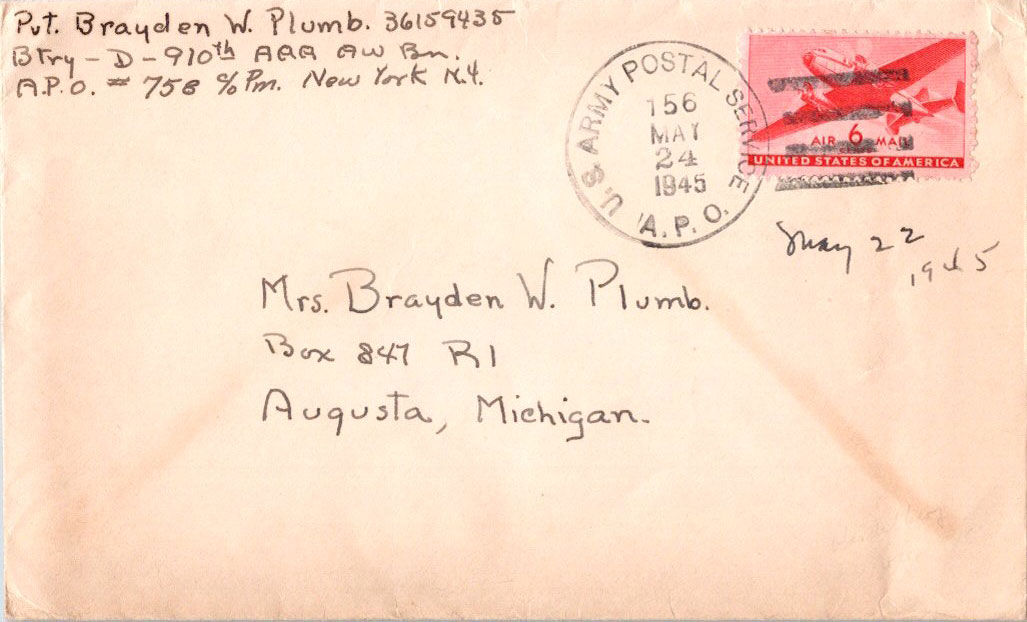 Pvt. Brayden W. Plumb. 36159435
Btry - D - 910th AAA AW Bn.
A.P.O. # 758 c/o Pm. New York N.Y.
U.S. ARMY POSTAL SERVICE
156
MAY
24
1945
A.P.O.
AIR 6 MAIL
UNITED STATES OF AMERICA
May 22
1945
Mrs. Brayden W. Plumb.
Box 847 R1
Augusta, Michigan.